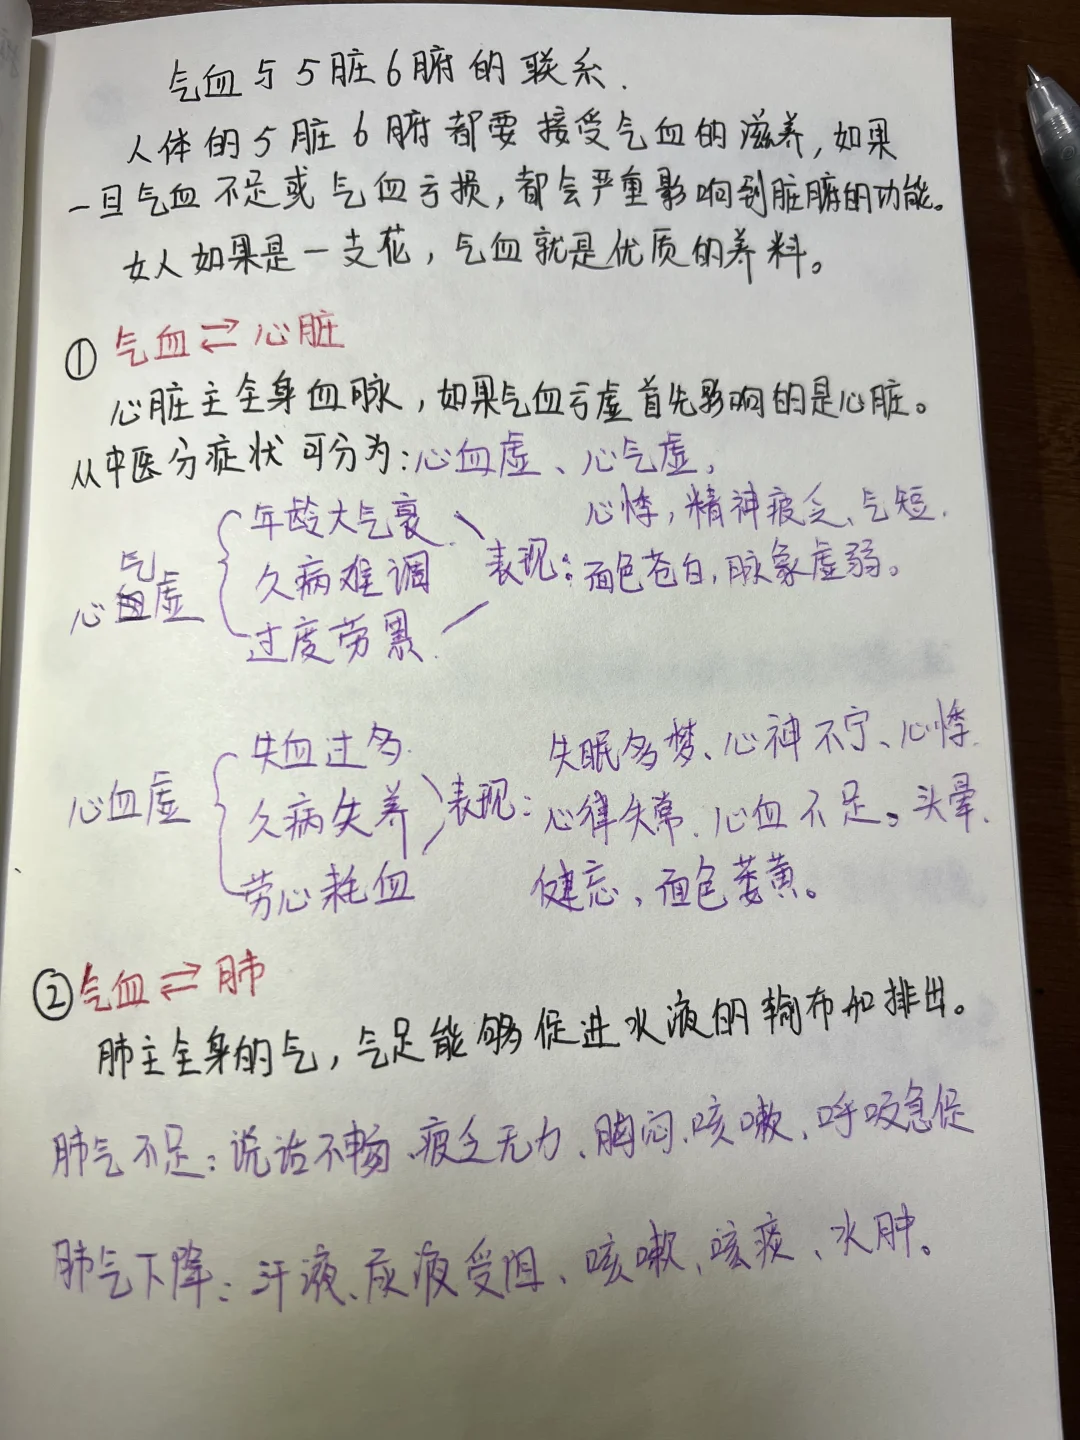 气血与5脏6腑的联系.
人体的5脏6腑都要接受气血的滋养,如果
一旦气血不足或气血亏损,都会严重影响到脏腑的功能。
女人如果是一支花,气血就是优质的养料。
① 气血⇄心脏
心脏主全身血脉,如果气血亏虚首先影响的是心脏。
从中医分症状可分为:心血虚、心气虚,
心气虚
年龄大气衰
久病难调
过度劳累.
表现:
心悸,精神疲乏、气短.
面色苍白,脉象虚弱。
心血虚
失血过多.
久病失养
劳心耗血
表现:
失眠多梦、心神不宁、心悸.
心律失常.心血不足。头晕.
健忘,面色萎黄。
②气血⇄肺
肺主全身的气,气足能够促进水液的输布和排出。
肺气不足:说话不畅.疲乏无力、胸闷.咳嗽、呼吸急促
肺气下降:汗液、尿液受阻、咳嗽、咳痰、水肿。